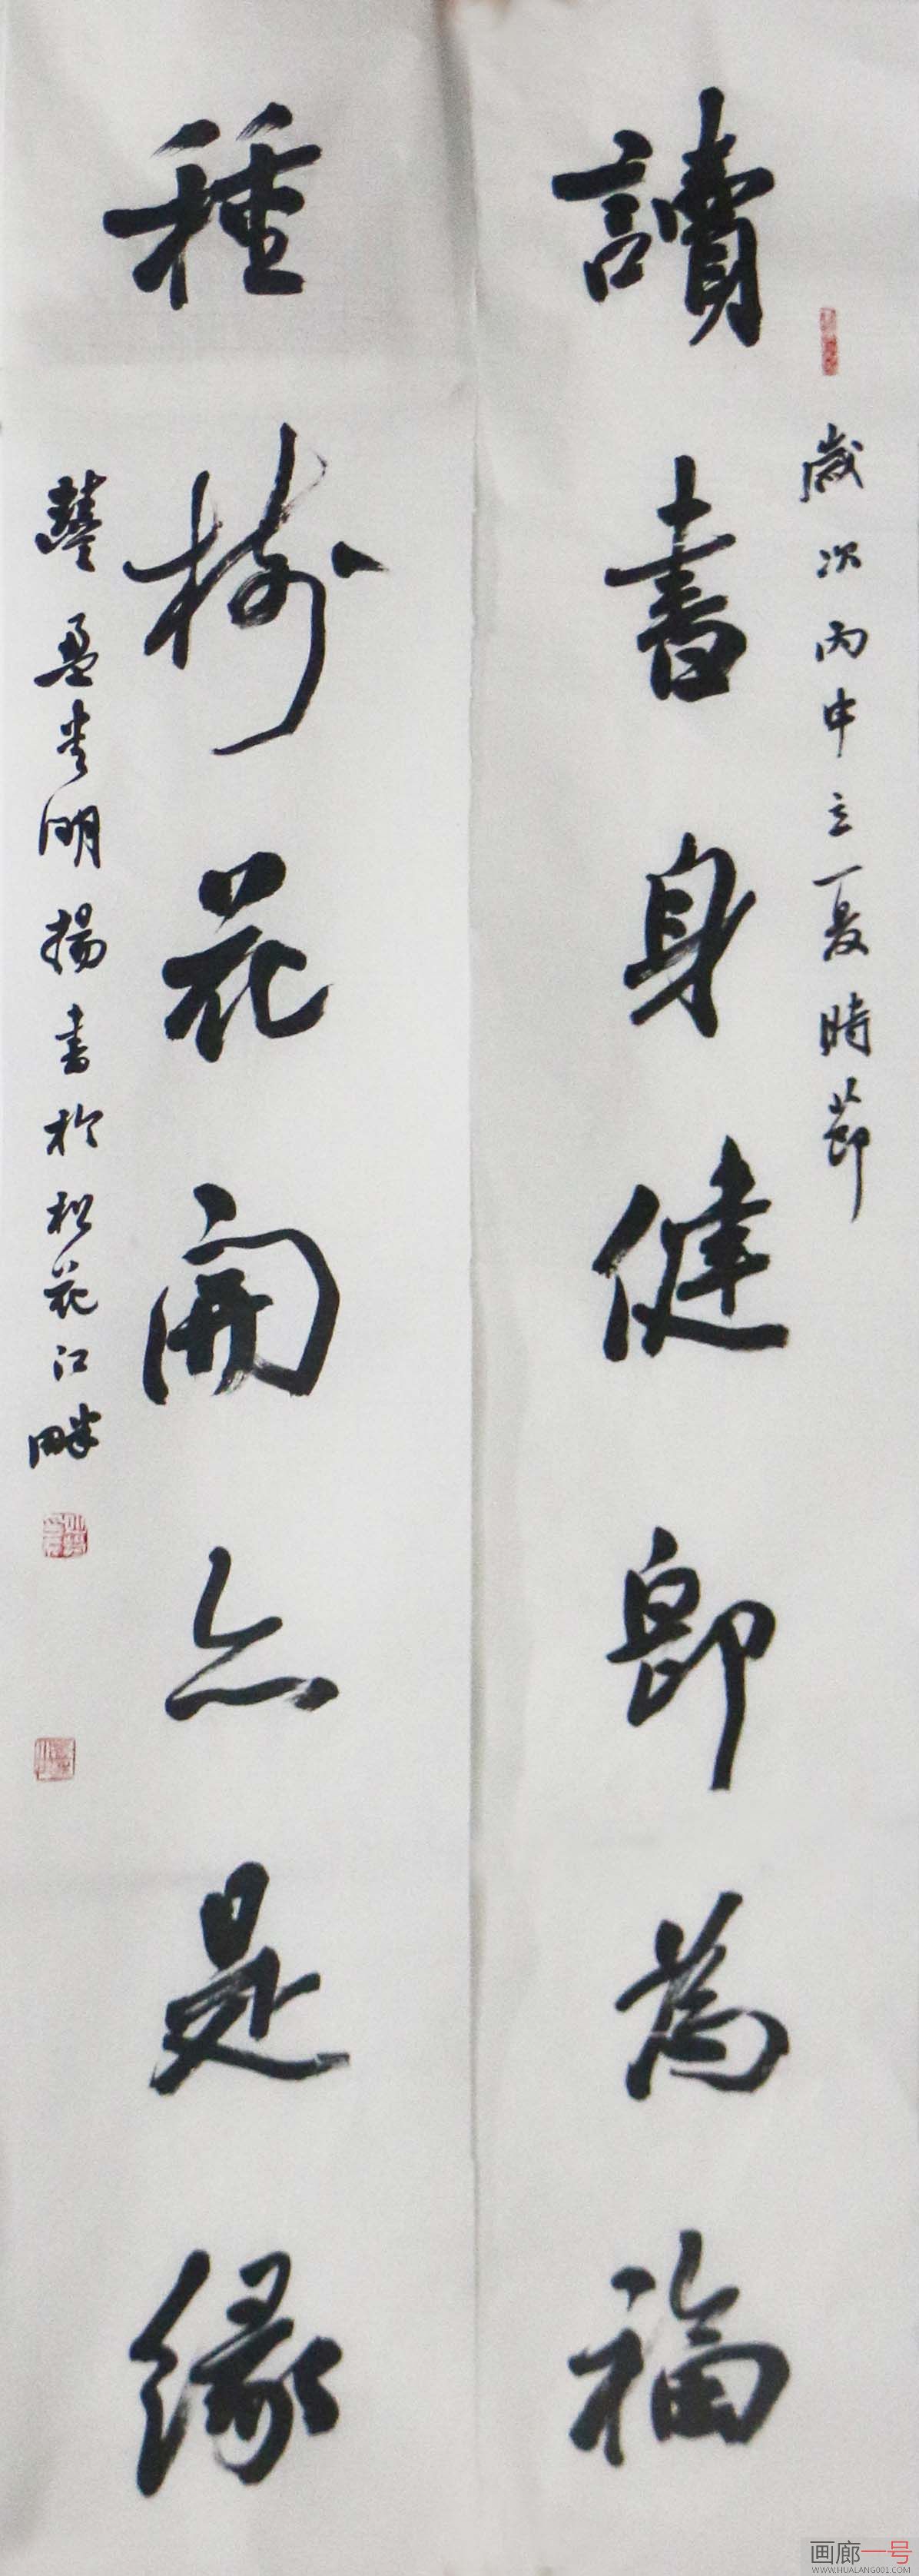 歲次丙申立夏時節
讀書身健即為福
種樹花開亦是緣
馨盈堂明揚書於松花江畔
画廊一号
WWW.HUALANG001.COM